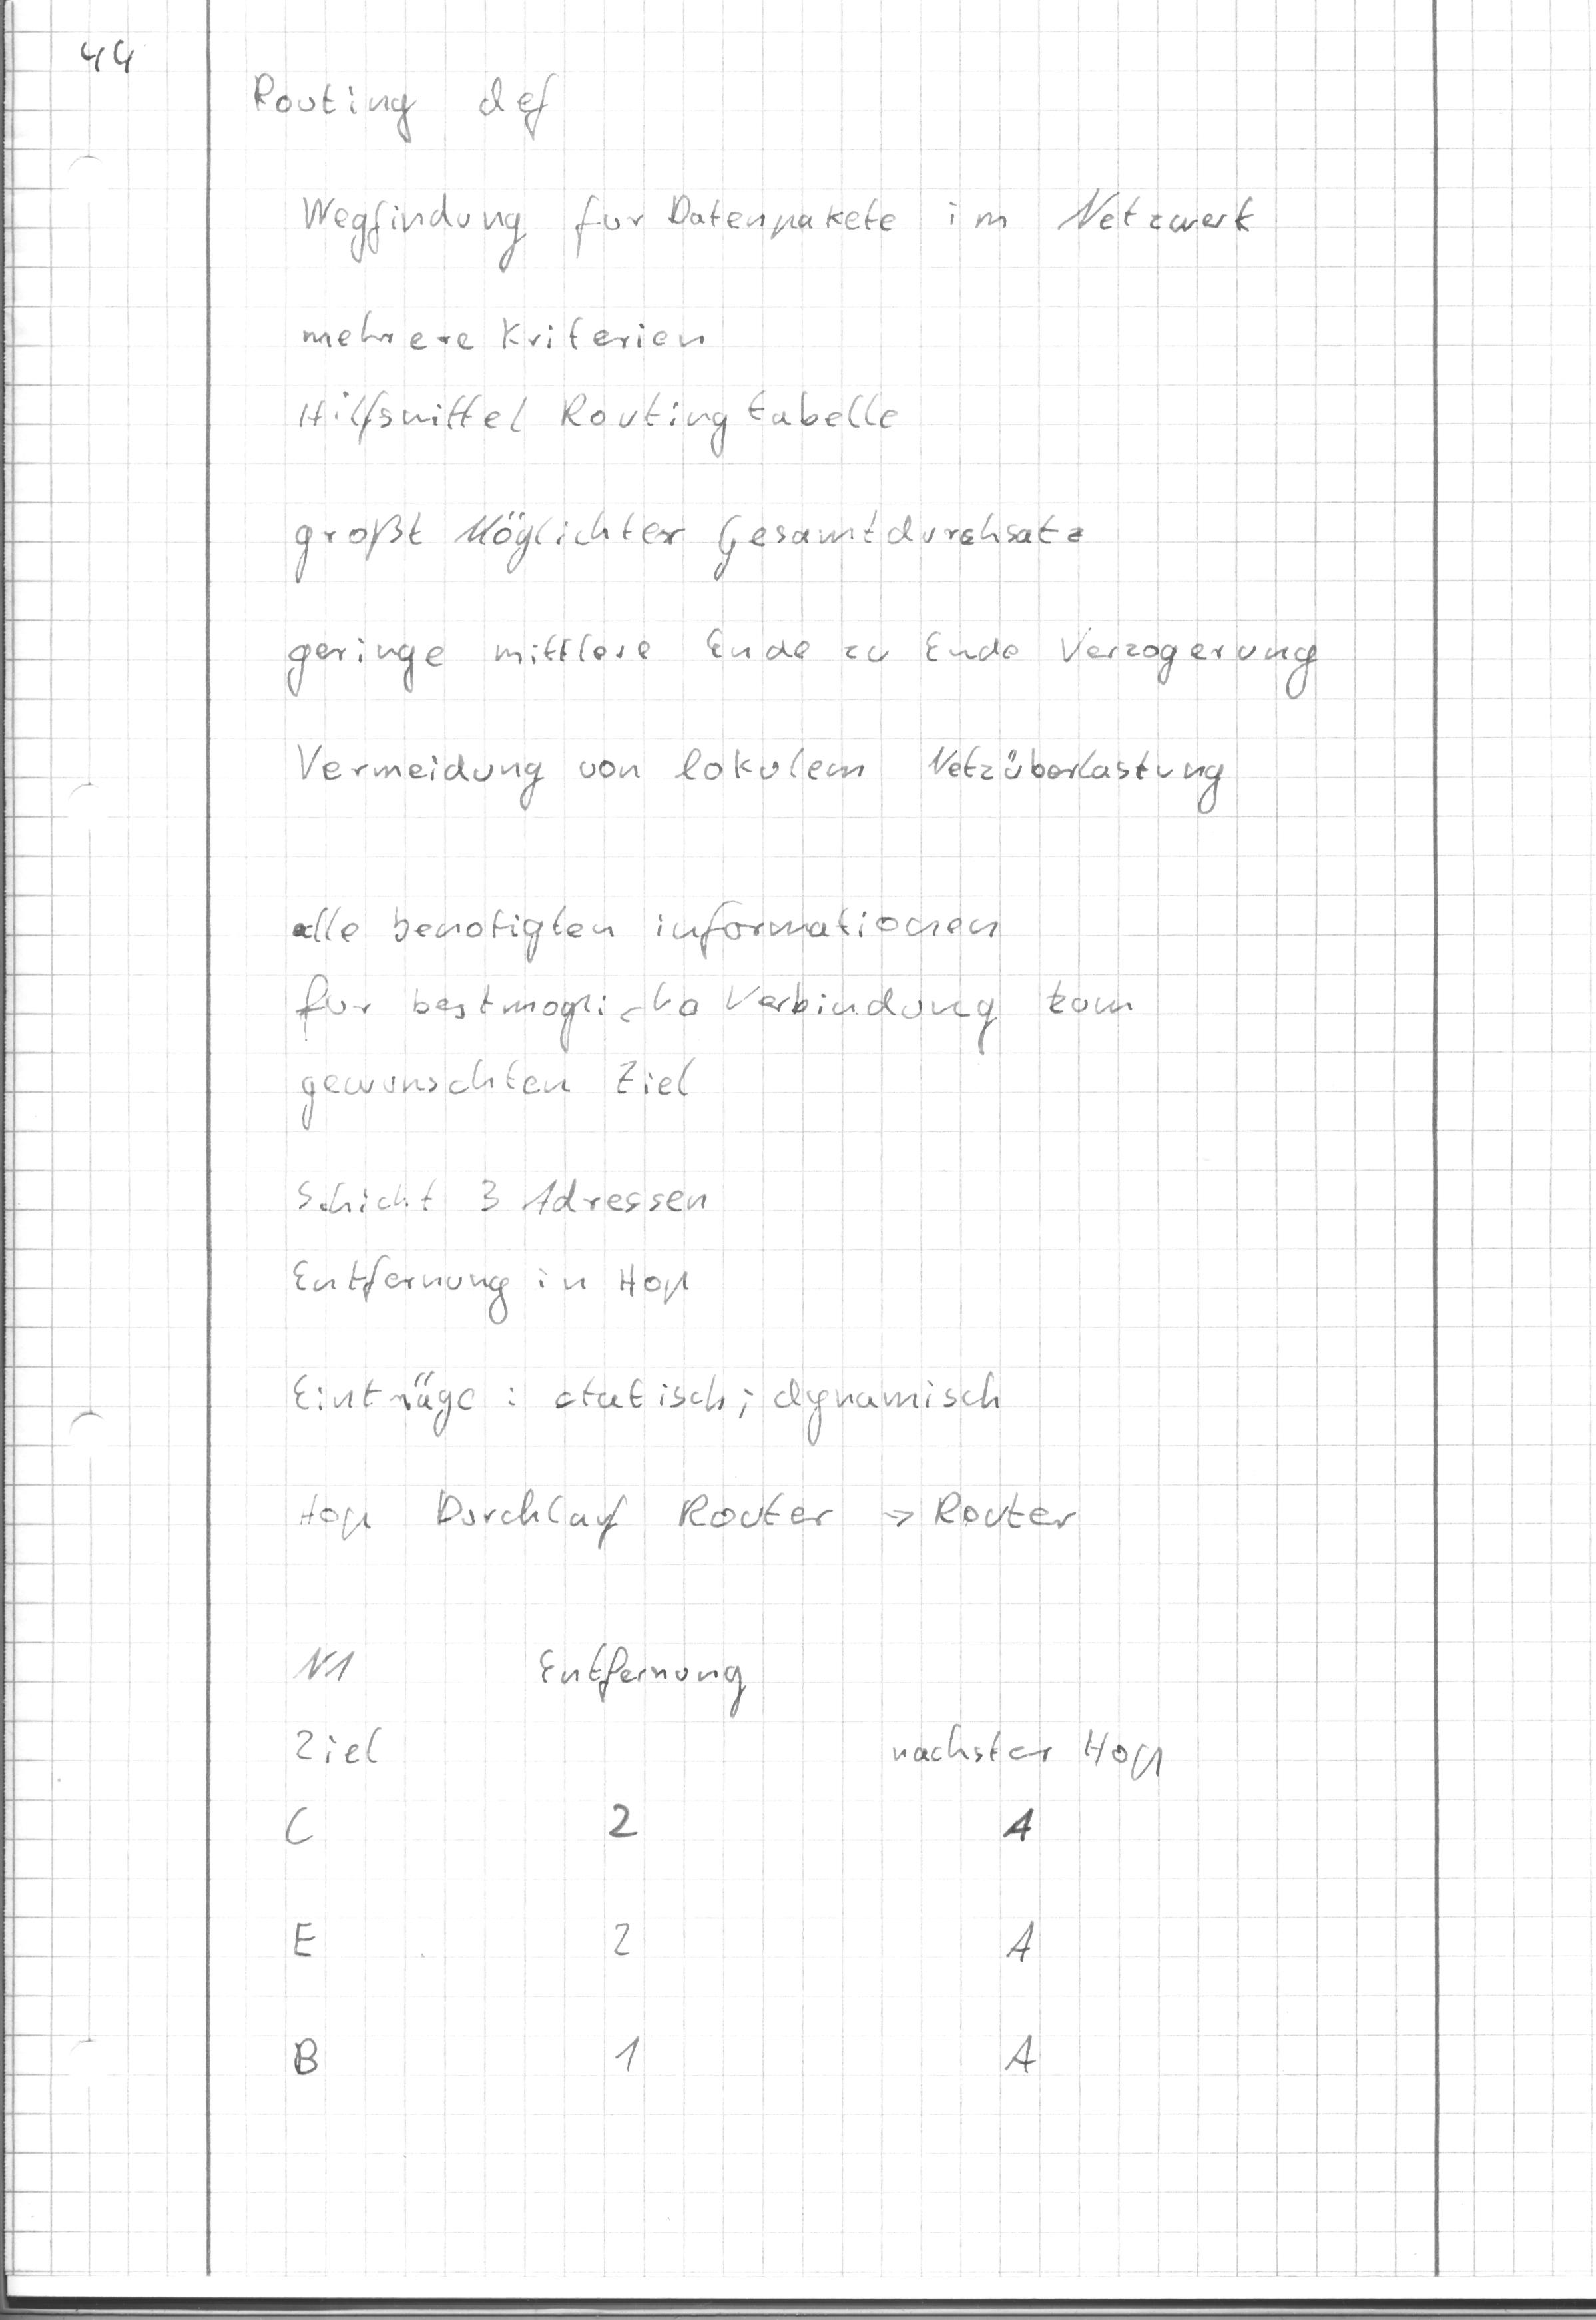 44
Routing def
Wegfindung fur Datenpakete im Netzwerk
mehrere Kriterien
Hilfsmittel Routingtabelle
großt Möglichter Gesamtdurchsatz
geringe mittlere Ende zu Ende Verzogerung
Vermeidung von lokalem Netzüberlastung
alle benotigten informationen
fur bestmogliche Verbindung zum
gewunschten Ziel
Schicht 3 Adressen
Entfernung in Hop
Einträge : statisch ; dynamisch
Hop Durchlauf Router → Router
N1 Entfernung
Ziel nachster Hop
C 2 A
E 2 A
B 1 A